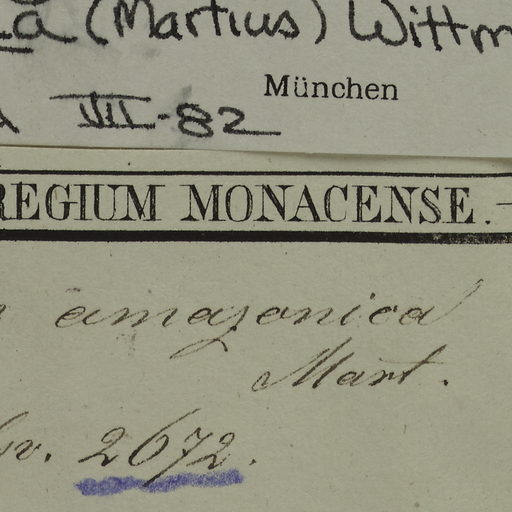 (Martius) Wittm
München
VII-82
REGIUM MONACENSE.
amazonica
Mart.
2672.